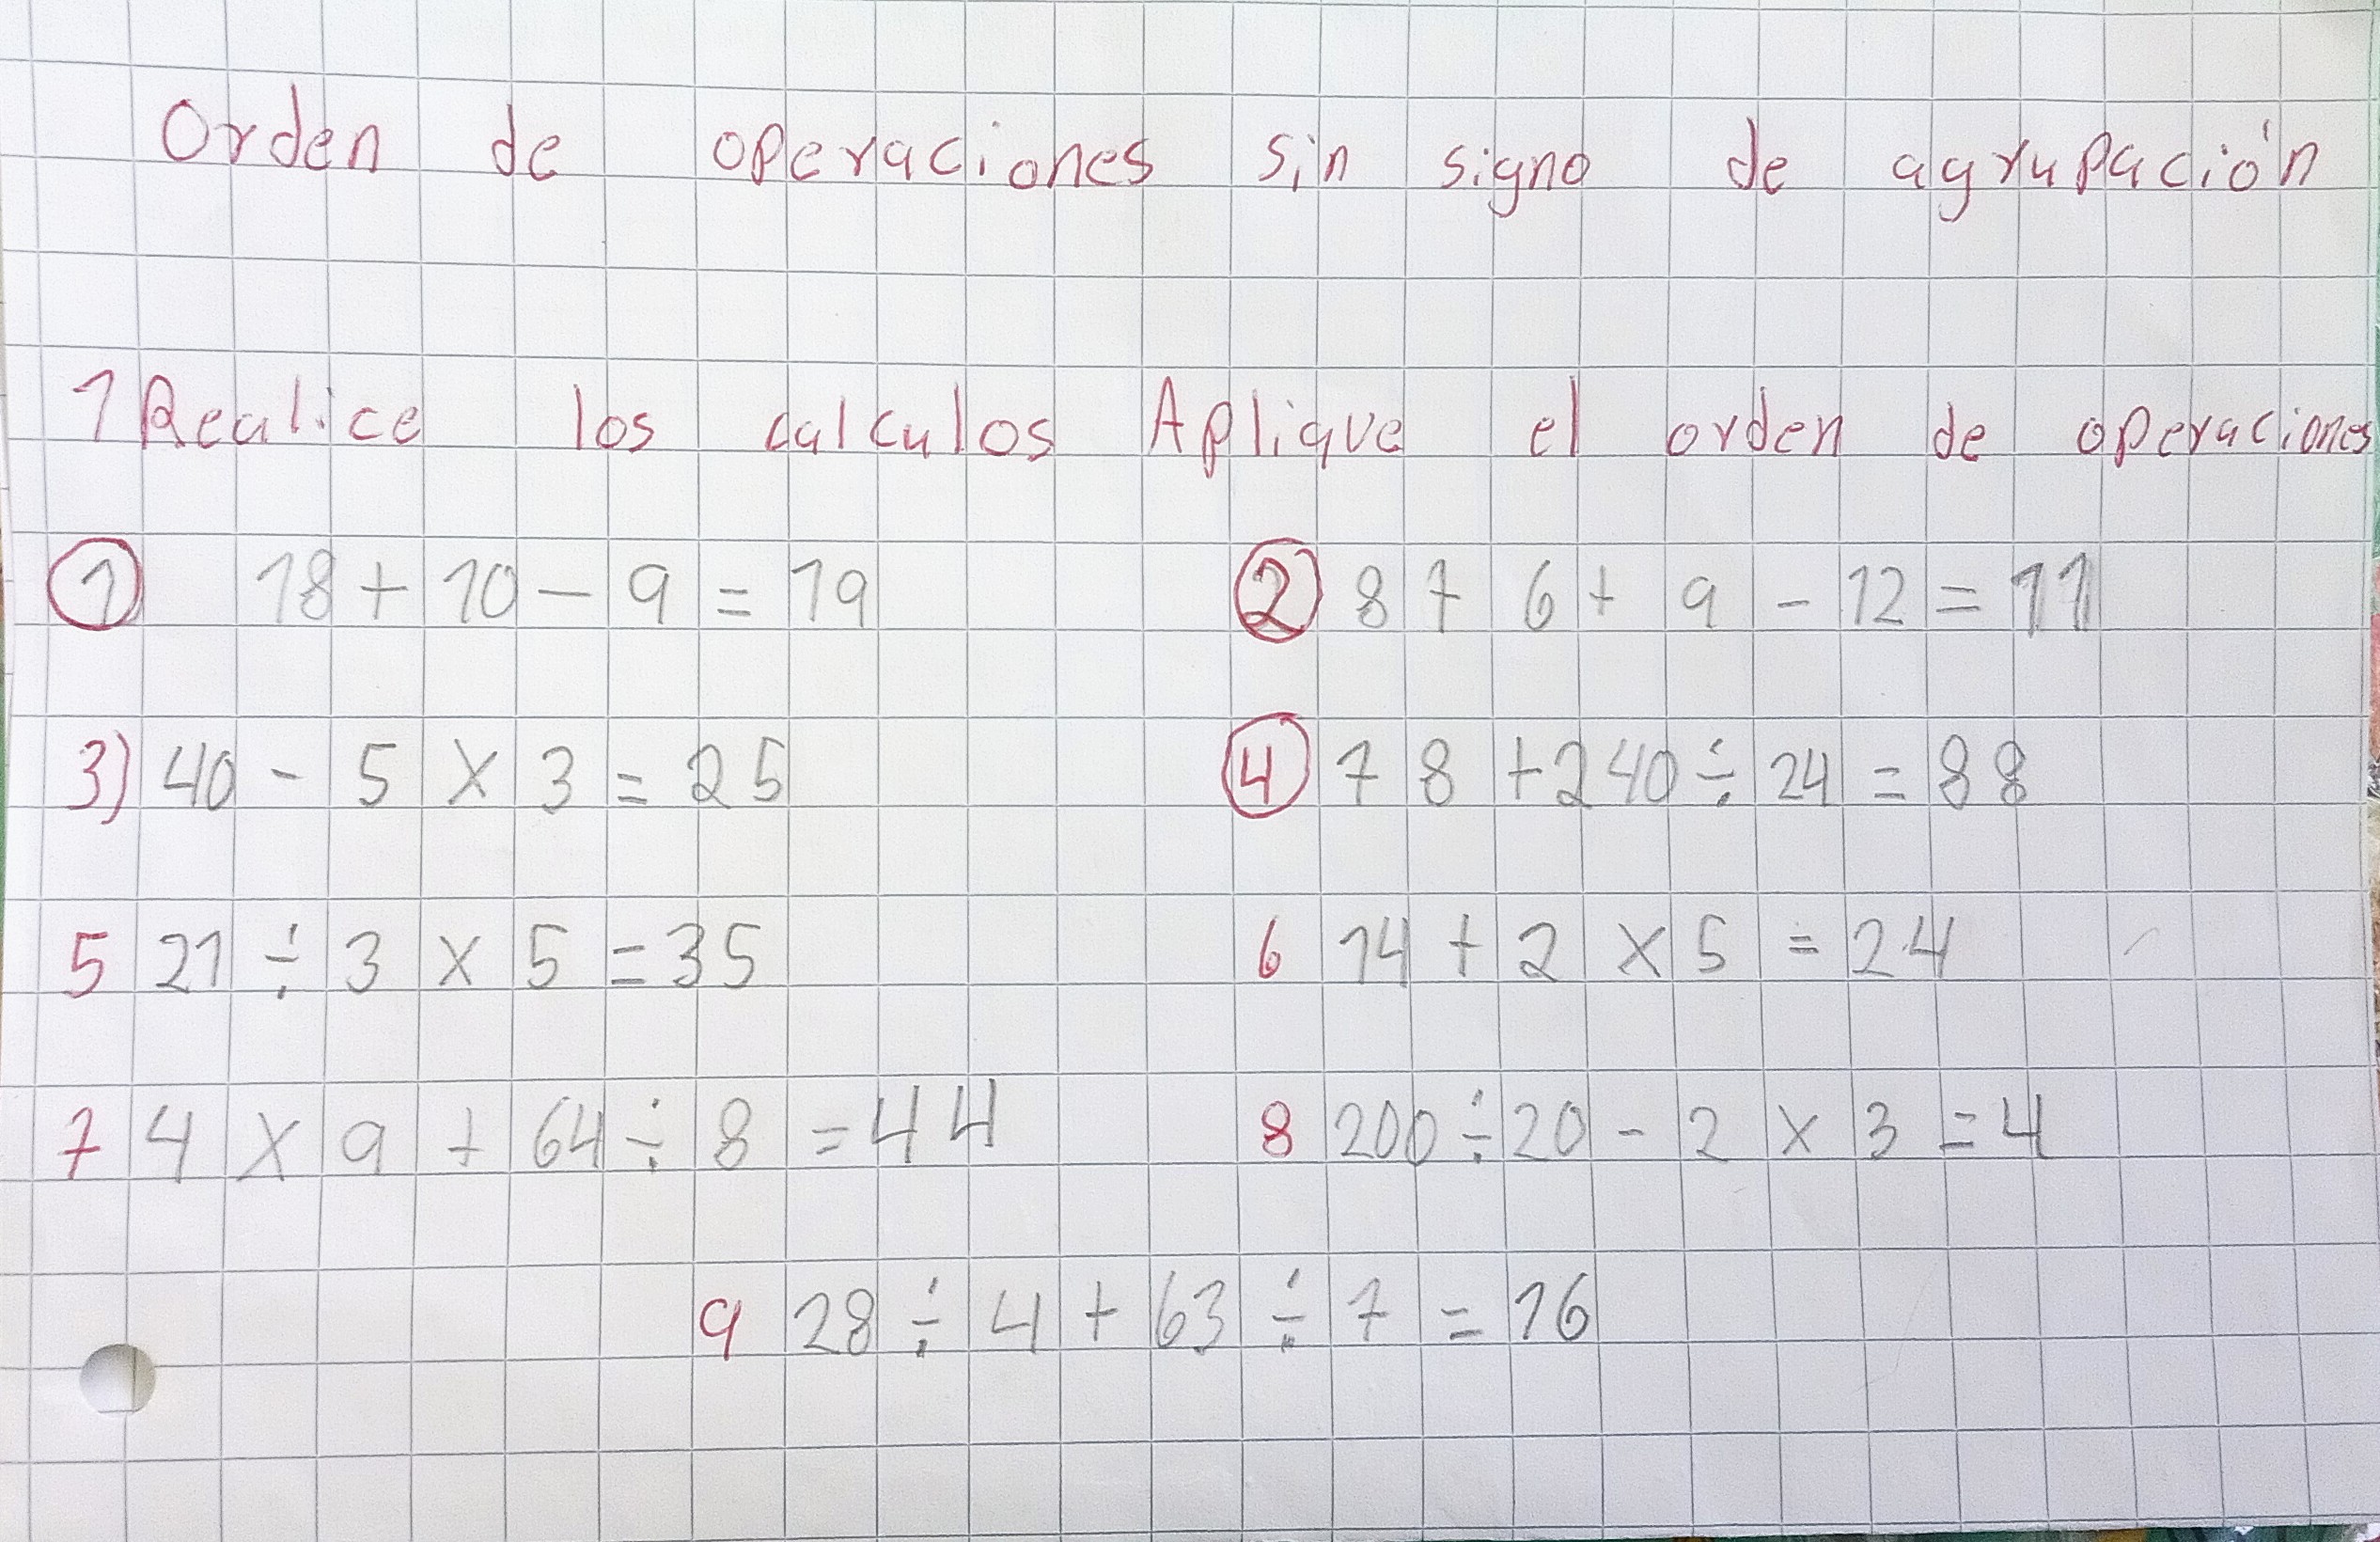 Orden de operaciones sin signo de agrupación
1 Realice los calculos Aplique el orden de operaciones
① 18 + 10 - 9 = 19 ② 8 + 6 + 9 - 12 = 11
3) 40 - 5 x 3 = 25 ④ 78 + 240 ÷ 24 = 88
5 21 ÷ 3 x 5 = 35 6 14 + 2 x 5 = 24
7 4 x 9 + 64 ÷ 8 = 44 8 200 ÷ 20 - 2 x 3 = 4
9 28 ÷ 4 + 63 ÷ 7 = 16